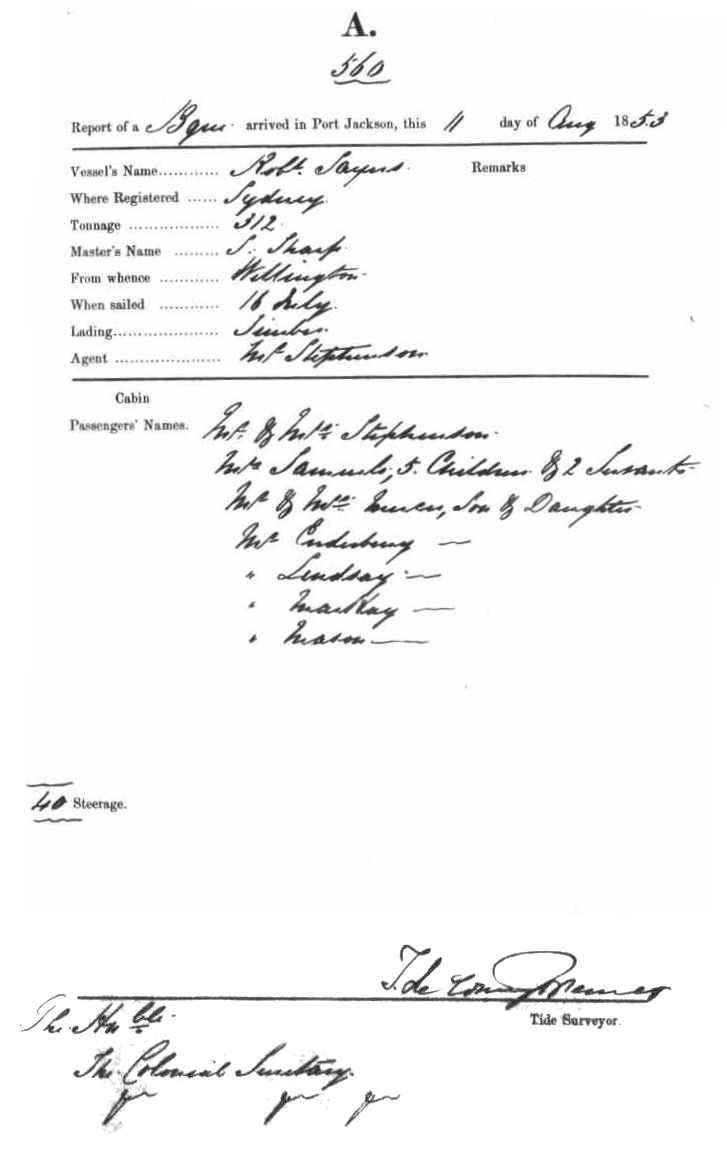 A.
560
Report of a Bque arrived in Port Jackson, this 11 day of Aug 1853
Vessel's Name............ Robt. Sayers. Remarks
Where Registered ...... Sydney.
Tonnage .................. 312.
Master's Name ......... S. Sharp
From whence ............ Wellington
When sailed ............ 16 July.
Lading..................... Timber.
Agent ..................... Mr Stephenson
Cabin
Passengers' Names. Mr. & Mrs. Stephenson.
Mrs Samuels, 5. Children & 2 Servants
Mr & Mrs. Son & Daughter
Mr Enderbury —
" Lindsay —
" MacKay —
" Mason —
40 Steerage.
T. de
Tide Surveyor.
The Honble.
The Colonial Secretary.